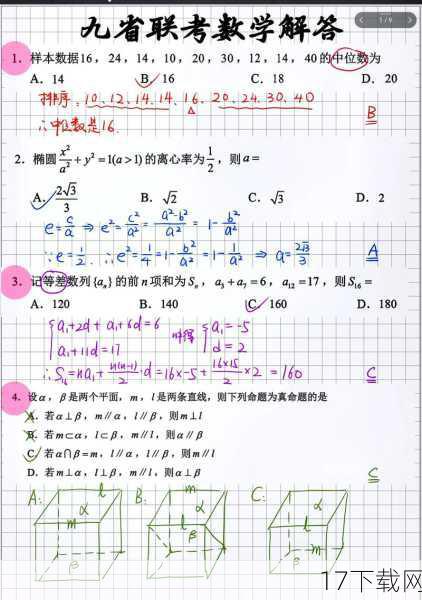 九省联考数学解答
1/9
1. 样本数据16，24，14，10，20，30，12，14，40的中位数为
A. 14 B. 16 C. 18 D. 20
排序：10.12.14.14.16.20.24.30.40
∴中位数是16.
B
2. 椭圆 x²/a² + y² = 1(a>1) 的离心率为 1/2，则 a=
A. 2√3/3 B. √2 C. √3 D. 2
e=c/a ⇒ e²=c²/a²=(a²-b²)/a²=1-b²/a²
∵e=1/2 ∴e²=1/4=1-b²/a²=1-1/a² ⇒ a=2√3/3 A
3. 记等差数列{aₙ}的前n项和为Sₙ，a₃+a₇=6，a₁₂=17，则S₁₆=
A. 120 B. 140 C. 160 D. 180
{a₁+2d+a₁+6d=6 解得 {a₁=-5
a₁+11d=17 d=2
∴S₁₆=na₁+n(n-1)/2·d=16×-5+16×15/2×2=160 C
4. 设α，β是两个平面，m，l是两条直线，则下列命题为真命题的是
A. 若α⊥β，m∥α，l∥β，则m⊥l
B. 若m⊂α，l⊂β，m∥l，则α∥β
C. 若α∩β=m，l∥α，l∥β，则m∥l
D. 若m⊥α，l⊥β，m∥l，则α⊥β
C
A: l α m β
B: m α l β
C: l α m β
17下载网